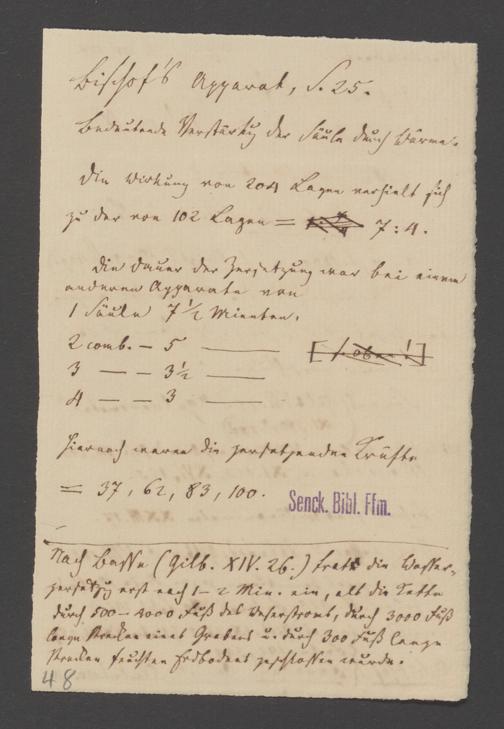 Bischof's Apparat, S. 25.
Bedeutende Verstärkg der Säule durch Wärme.
Die Wirkung von 204 Lagen verhielt sich
zu der von 102 Lagen = 7 : 4.
Die Dauer der Zersetzung war bei einem
anderen Apparate von
1 Säule 7 1/2 Minuten.
2 comb. — 5 —— [s. oben!]
3 — — 3 1/2 ——
4 — — 3 ——
Hiernach waren die zersetzenden Kräfte
= 37, 62, 83, 100.
Senck. Bibl. Ffm.
Nach Basse (Gilb. XIV. 26.) trat die Wasser-
zersetzg erst nach 1–2 Min. ein, als die Kette
durch 500–4000 Fuß des Weserstroms, durch 3000 Fuß
lange Strecken eines Grabens u. durch 300 Fuß lange
Strecken feuchten Erdbodens geschlossen wurde.
48